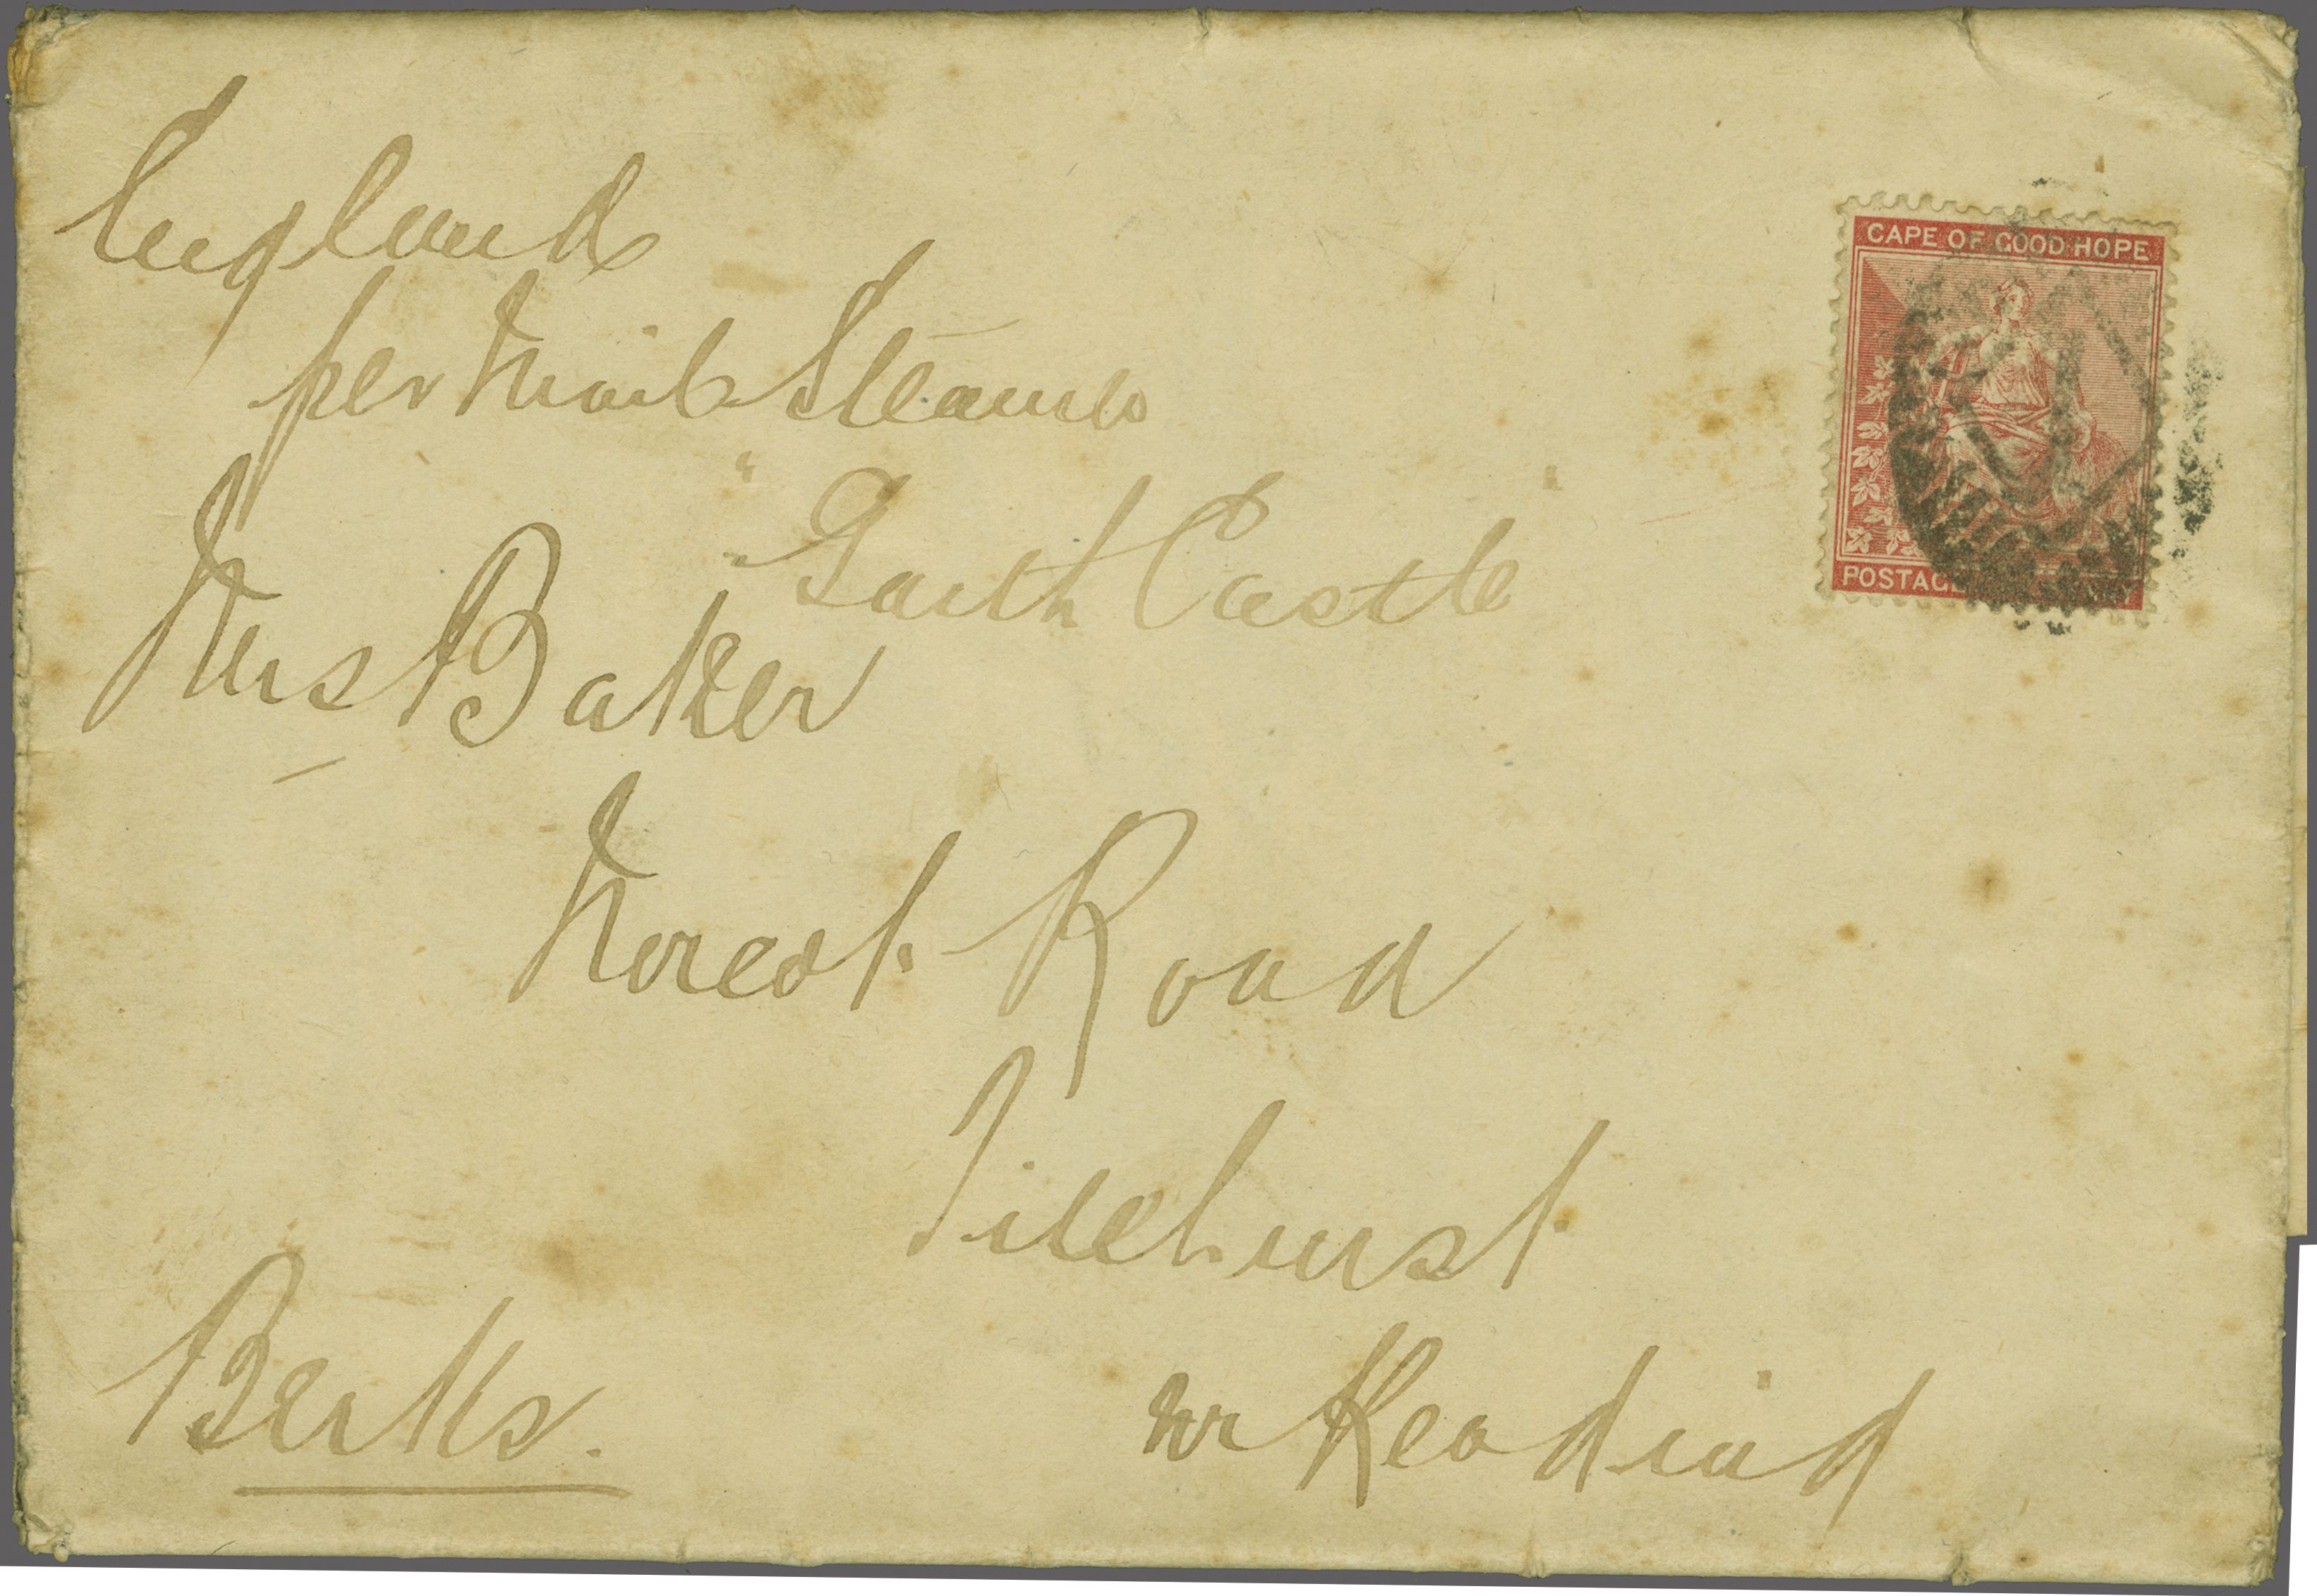 England
per Mail Steamer
"Garth Castle"
Mrs Baker
Norcot Road
Tilehurst
nr Reading
Berks.
CAPE OF GOOD HOPE
POSTAGE